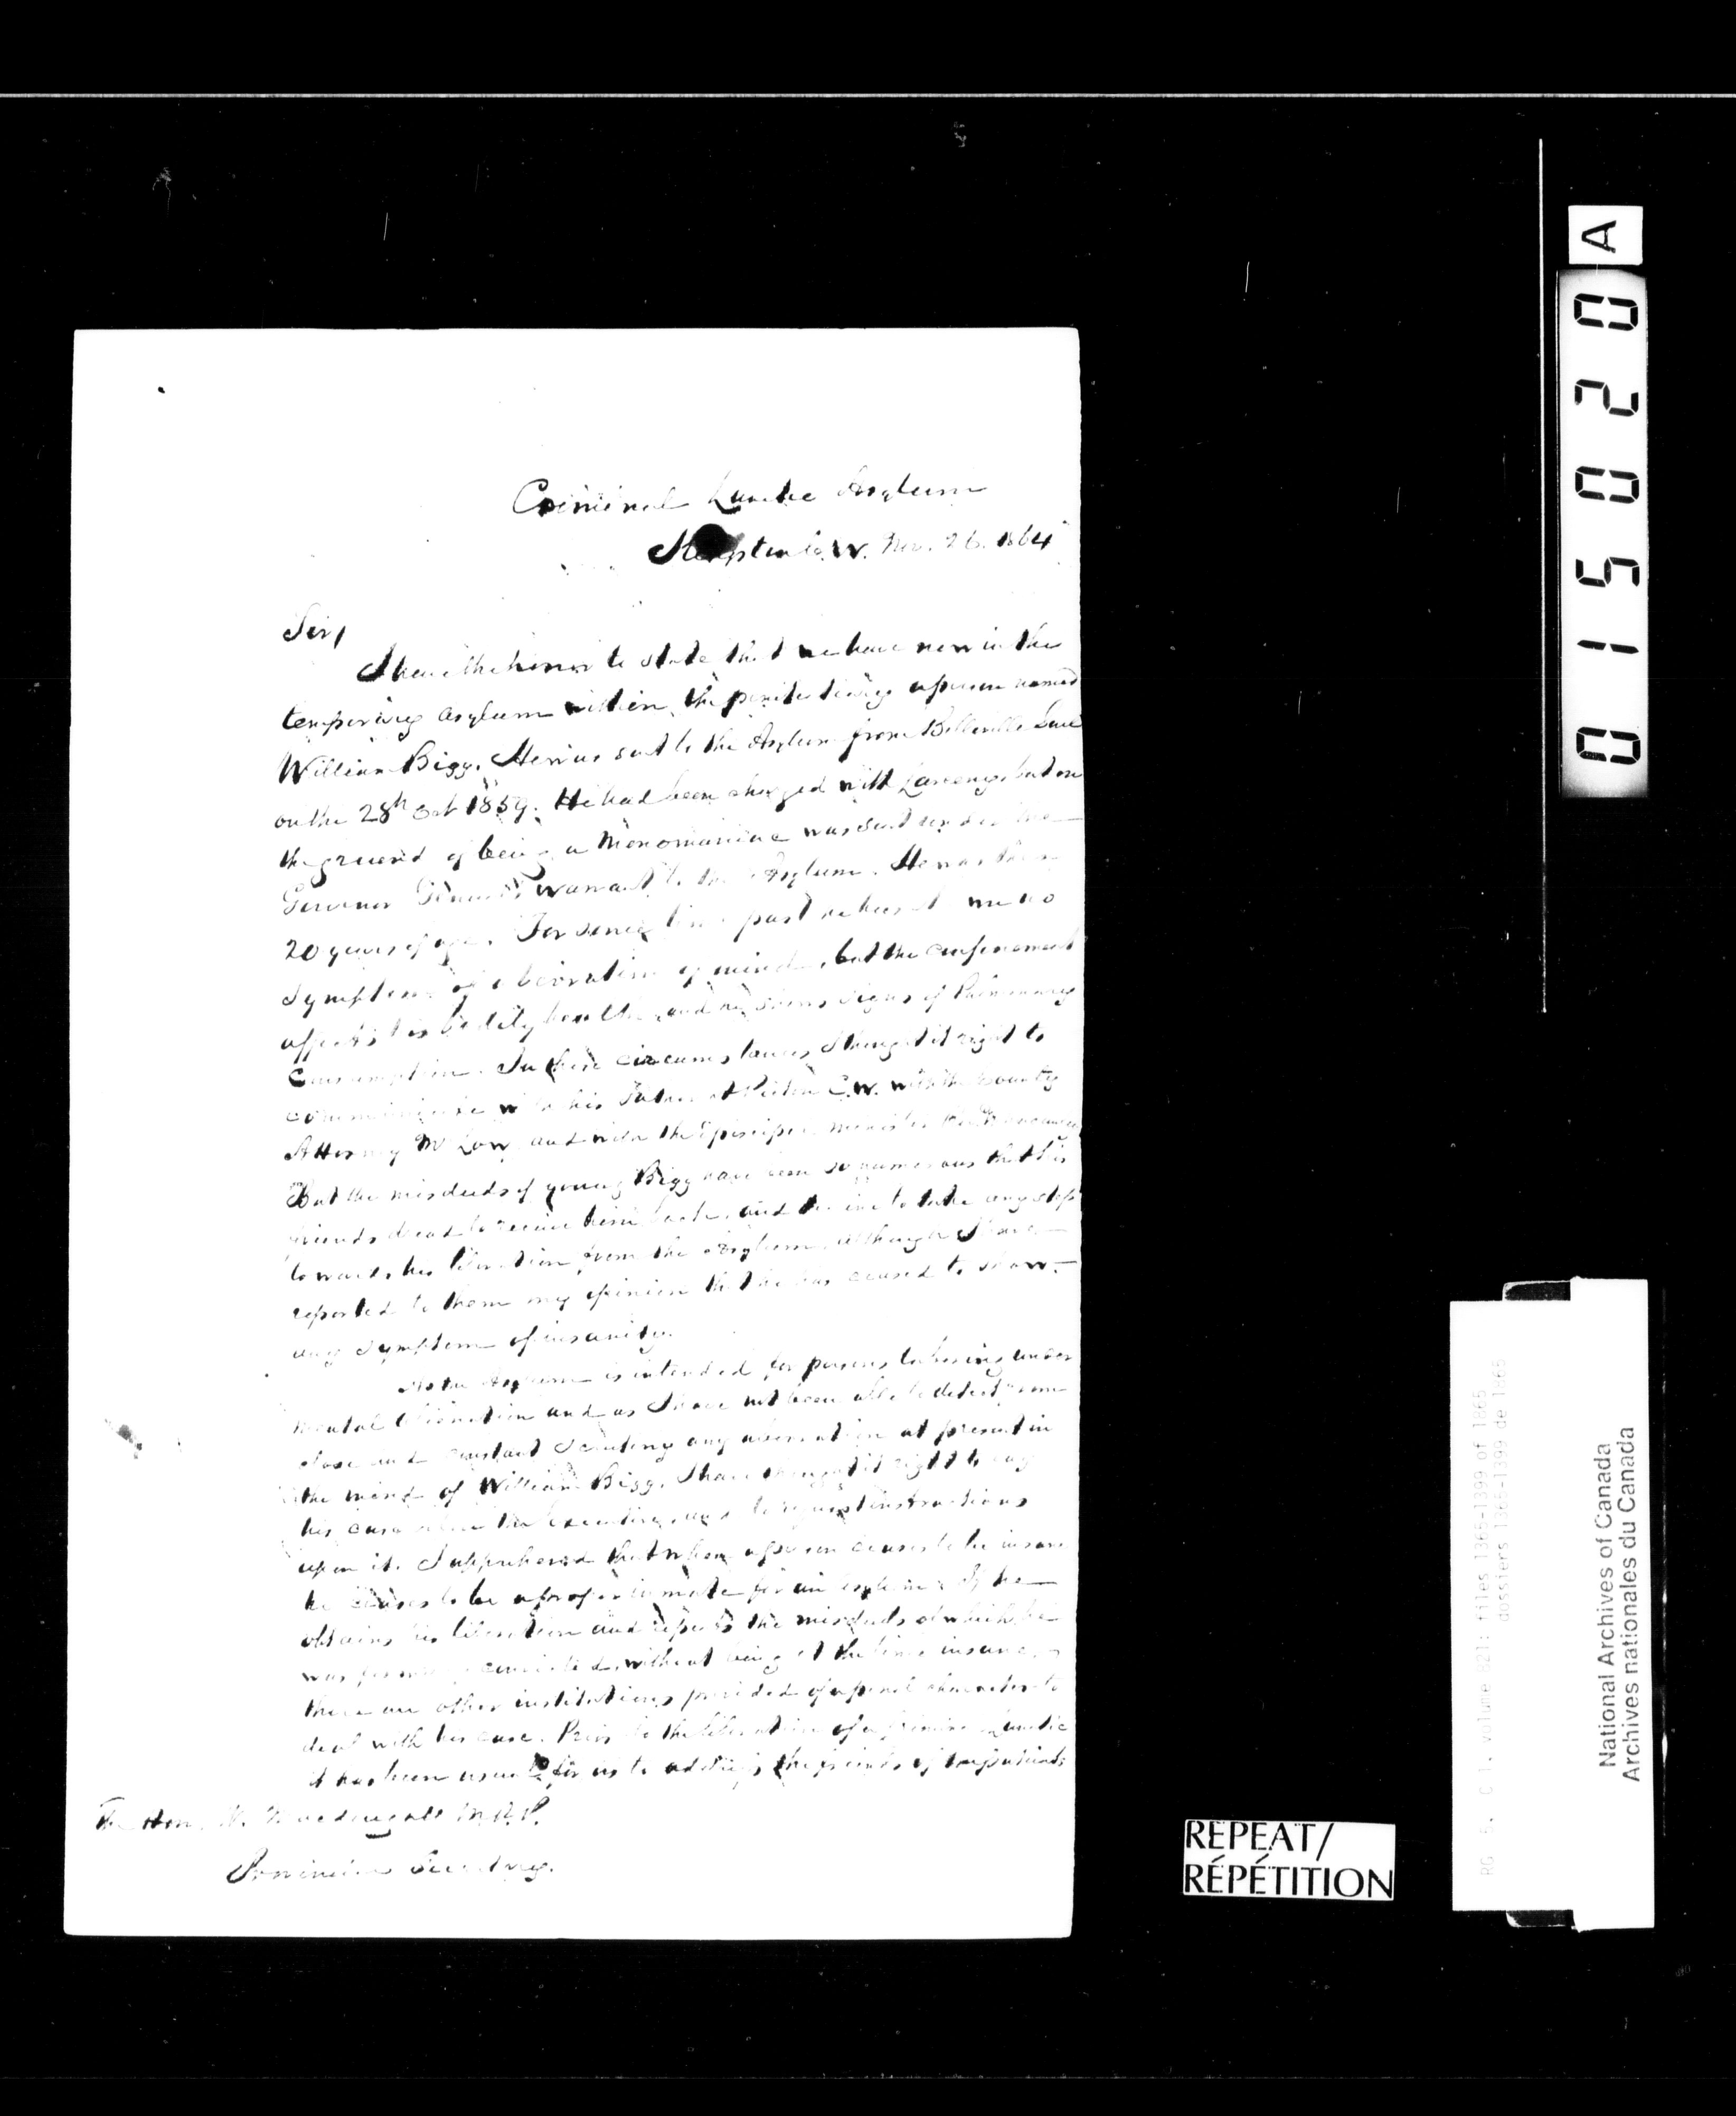 Criminal Lunatic Asylum
Kingston C.W. Nov. 26. 1864
Sir,
I have the honor to state that we have now in the
temporary asylum within the penitentiary a person named
William Bigg. He was sent to the Asylum from Belleville Gaol
on the 28th Oct 1859. He had been charged with Larceny but on
the ground of being a Monomaniac was sent under the
Governor General's warrant to the Asylum. He was then
20 years of age. For some time past he has shewn no
symptom of aberration of mind, but the confinement
affects his bodily health, and he shows signs of Pulmonary
Consumption. In these circumstances I thought it right to
communicate with his Father at Picton C.W. with the County
Attorney Mr Low and with the Episcopal minister
But the misdeeds of young Bigg have been so numerous that his
friends dread to receive him back, and decline to take any steps
towards his liberation from the Asylum, although I have
reported to them my opinion that he has ceased to show
any symptom of insanity.
As the Asylum is intended for persons laboring under
mental alienation and as I have not been able to detect from
close and constant scrutiny any aberration at present in
the mind of William Bigg, I have thought it right to lay
his case before the Executive, and to request instructions
upon it. I apprehend that when a person ceases to be insane
he ceases to be a proper inmate for an asylum. If he
obtains his liberation and repeats the misdeeds of which he
was formerly convicted, without being at the time insane,
there are other institutions provided of a penal character to
deal with his case. Prior to the liberation of a Criminal Lunatic
it has been usual for us to address the friends of the patients
The Hon. W. Macdougall M.P.P.
Provincial Secretary.
A
015020
REPEAT/
RÉPÉTITION
RG 5, C 1, volume 821: files 1365-1399 of 1865
dossiers 1365-1399 de 1865
National Archives of Canada
Archives nationales du Canada